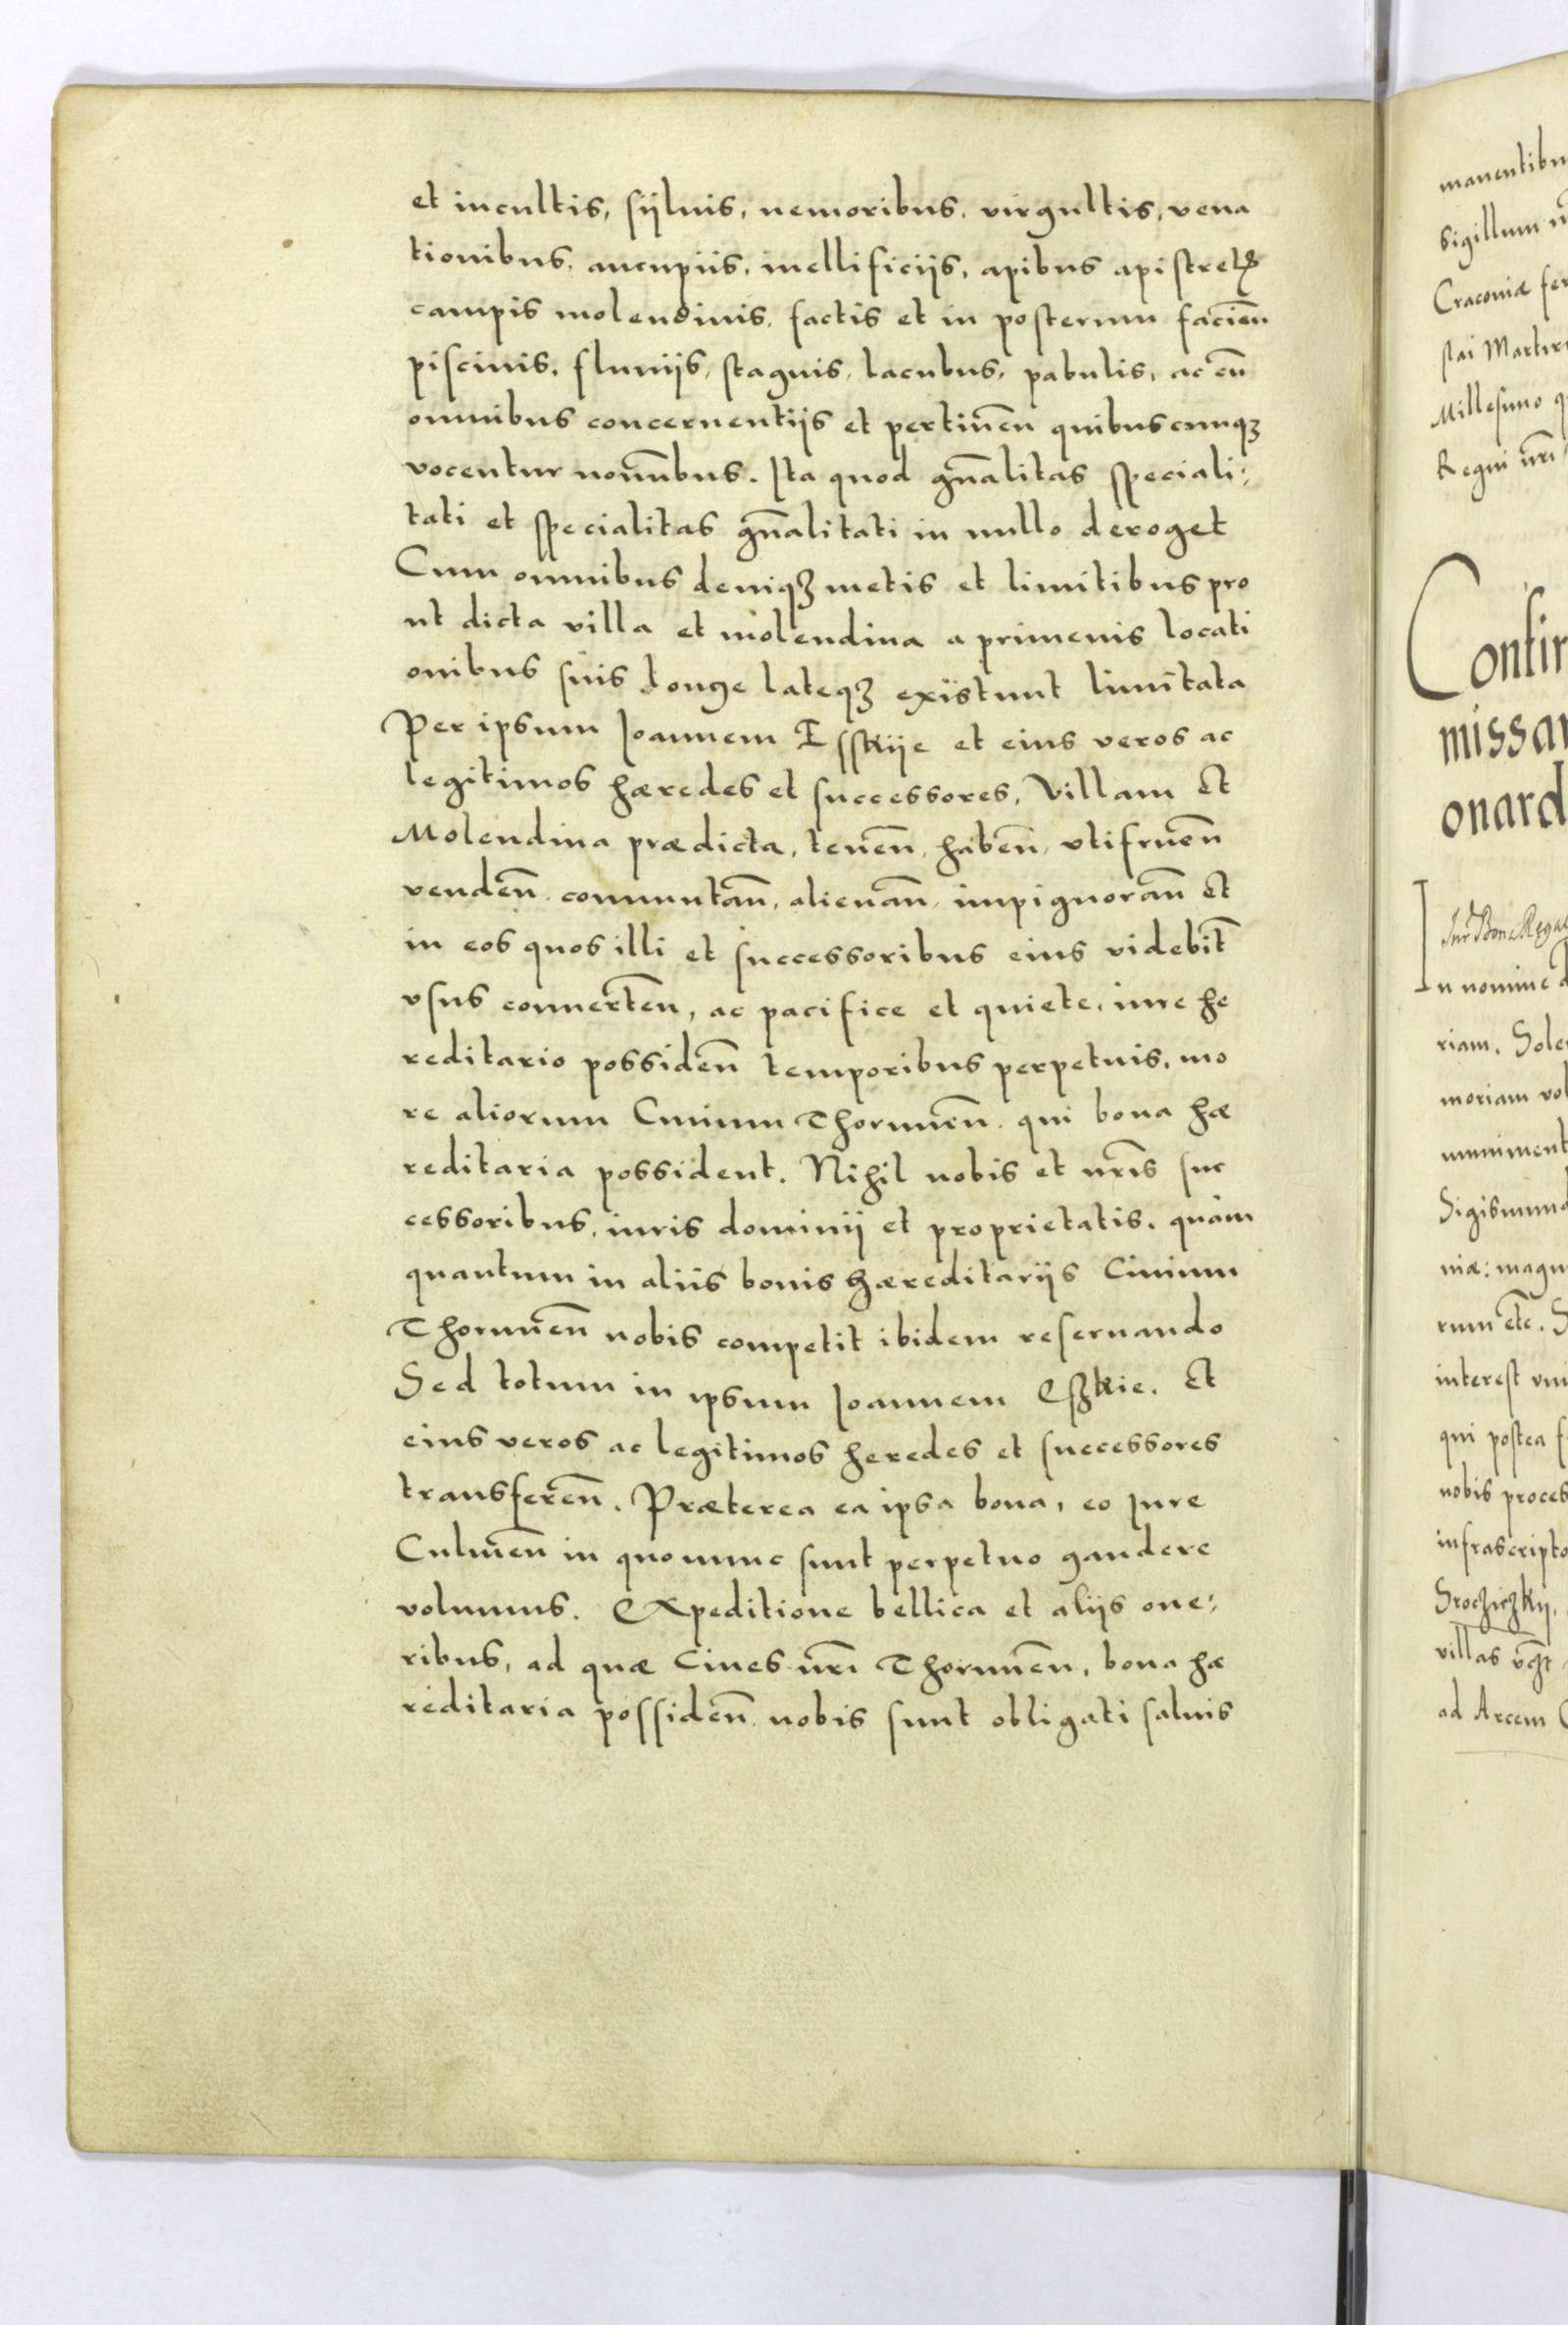 et incultis, sÿluis, nemoribus, virgultis, vena
tionibus, aucupiis, mellificiis, apibus apistretꝝ
campis molendinis, factis et in posterum facien̄
piscinis, fluuiis, stagnis, lacubus, pabulis, ac cū
omnibus concernentiis et pertinen̄ quibuscunqꝫ
vocentur nomībus. Ita quod gn̄alitas speciali:
tati et specialitas gn̄alitati in nullo deroget
Cum omnibus deniqꝫ metis et limitibus pro
ut dicta villa et molendina a primeuis locati
onibus suis longe lateqꝫ existunt limitata
Per ipsum Joannem Esskÿe et eius veros ac
legitimos hæredes et successores, Villam Et
Molendina prædicta, tenen̄, haben̄, vtifruen̄
venden̄, commutan̄, alienan̄, impignoran̄ Et
in eos quos illi et successoribus eius videbit̄
vsus conuerten̄, ac pacifice et quiete, iure he
reditario possiden̄ temporibus perpetuis, mo
re aliorum Ciuium Thorunen̄ qui bona hæ
reditaria possident. Nihil nobis et nr̄is suc
cessoribus, iuris dominii et proprietatis, quàm
quantum in aliis bonis hæreditariis Ciuium
Thorunen̄ nobis competit ibidem reseruando
Sed totum in ipsum Joannem Eszkie. Et
eius veros ac legitimos heredes et successores
transferen̄. Præterea ea ipsa bona, eo Jure
Culmen̄ in quo nunc sunt perpetuo gaudere
volumus. Expeditione bellica et aliis one:
ribus, ad quæ Ciues nr̄i Thorunen̄, bona hæ
reditaria possiden̄ nobis sunt obligati saluis
manentibu
Sigillum
Craconiæ fer
Millesimo q
Regni nr̄i
Confir
missar
onard
n nomine
riam. Sole
moriam vol
muniment
Sigismund
niæ: magn
rum etc̄. S
interest vni
qui postea f
nobis proces
infrascripto
Sroczickÿ,
villas
ad Arcem